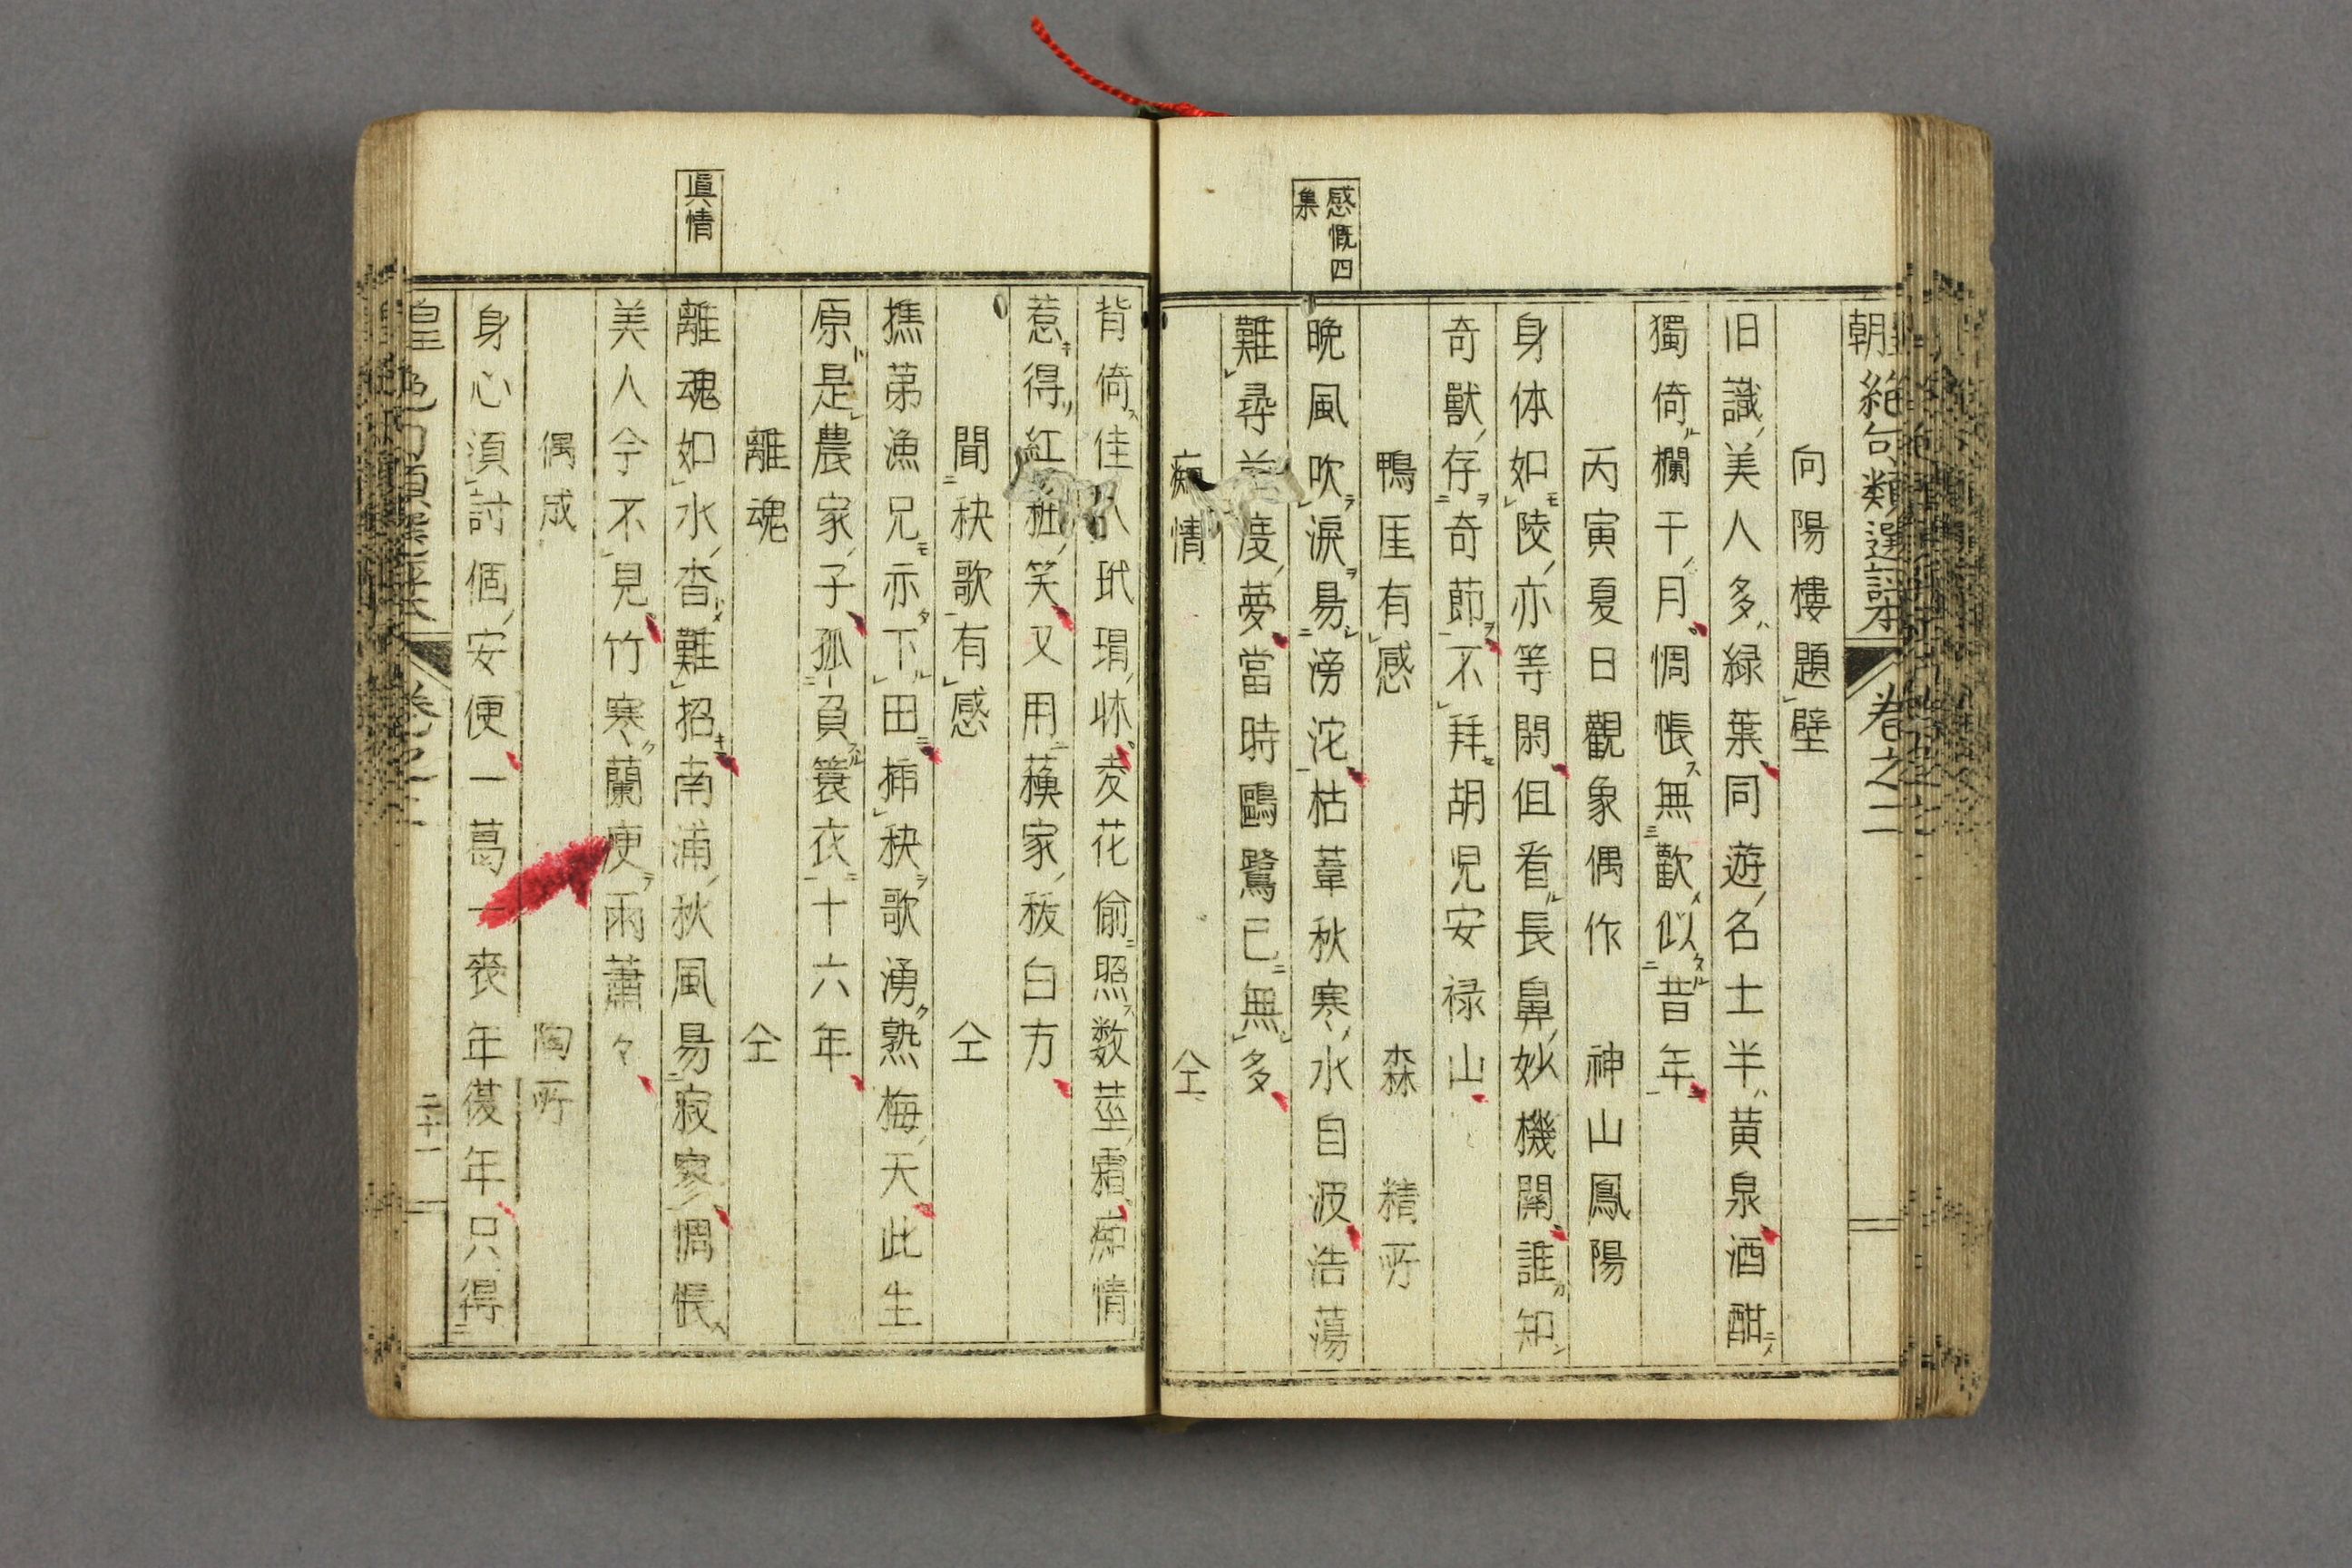 朝絶句類選評本 卷之二
向陽樓題壁
旧識美人多緑葉同遊名士半黄泉酒酣
獨倚欄干月惆帳無歡似昔年
丙寅夏日觀象偶作 神山鳳陽
身体如陵亦等閑但看長鼻妙機関誰知
奇獣存奇節不拜胡児安禄山
鴨厓有感 森精所
感慨四
集
晩風吹涙易滂沱枯葦秋寒水自波浩蕩
難尋 度夢當時鷗鷺已無多
痴情 仝
背倚佳人玳瑁牀菱花偷照数莖霜痴情
惹得紅粧笑又用蘓家秡白方
聞秧歌有感 仝
樵弟漁兄亦下田挿秧歌湧熟梅天此生
原是農家子孤負簔衣十六年
離魂 仝
眞情
離魂如水杳難招南浦秋風易寂寥惆悵
美人今不見竹寒蘭痩雨蕭々
偶成 陶所
身心須討個安便一葛一裘年復年只得
皇 卷之二 二十一